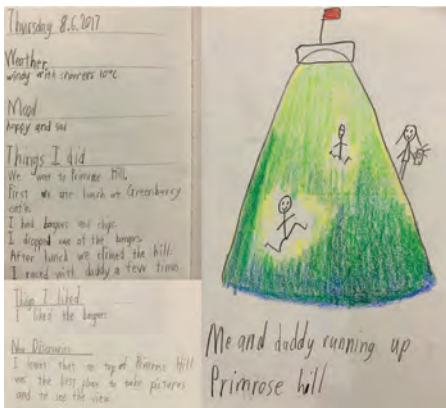 Thursday 8.6.2017
Weather
windy with showers 10°C
Mood
happy and sad
Things I did
We went to Primrose Hill.
First we ate lunch at Greenberry
cafe.
I had burgers and chips.
I dropped one of the burgers.
After lunch we climed the hill.
I raced with daddy a few time
Things I liked
I liked the burgers
New Discoveries
I learnt that the top of Primrose Hill
was the best place to take pictures
and to see the view.
Me and daddy running up
Primrose hill